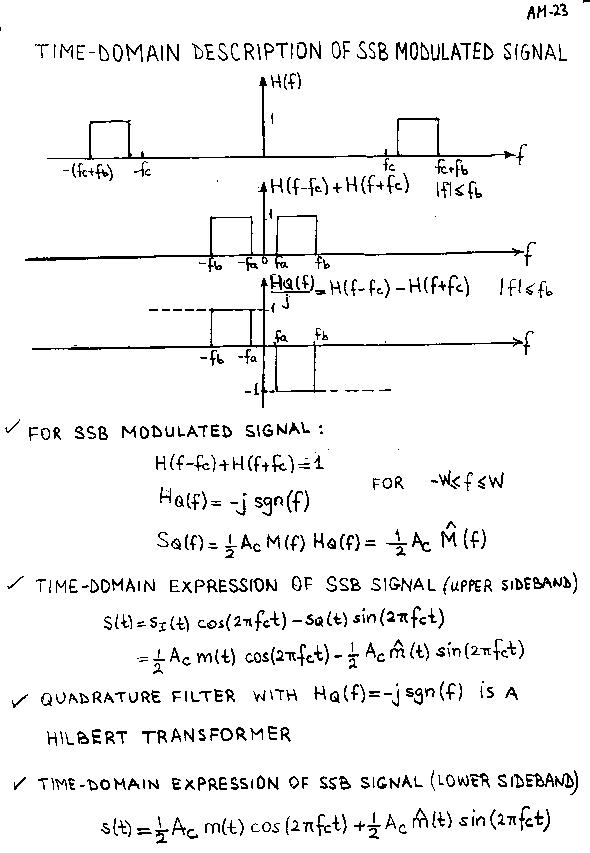 AM-23
TIME-DOMAIN DESCRIPTION OF SSB MODULATED SIGNAL
H(f)
1
-(fc+fb) -fc fc fc+fb f
H(f-fc)+H(f+fc) |f|≤fb
1
-fb -fa 0 fa fb f
HQ(f)/j = H(f-fc) - H(f+fc) |f|≤fb
1
-fb -fa fa fb f
-1
✓ FOR SSB MODULATED SIGNAL :
H(f-fc)+H(f+fc)=1
FOR -W≤f≤W
HQ(f)= -j sgn(f)
SQ(f)= 1/2 Ac M(f) HQ(f)= 1/2 Ac M̂(f)
✓ TIME-DOMAIN EXPRESSION OF SSB SIGNAL (UPPER SIDEBAND)
S(t)=SI(t) cos(2πfct)-SQ(t) sin(2πfct)
= 1/2 Ac m(t) cos(2πfct)- 1/2 Ac m̂(t) sin(2πfct)
✓ QUADRATURE FILTER WITH HQ(f)=-j sgn(f) IS A
HILBERT TRANSFORMER
✓ TIME-DOMAIN EXPRESSION OF SSB SIGNAL (LOWER SIDEBAND)
s(t)= 1/2 Ac m(t) cos(2πfct)+ 1/2 Ac m̂(t) sin(2πfct)